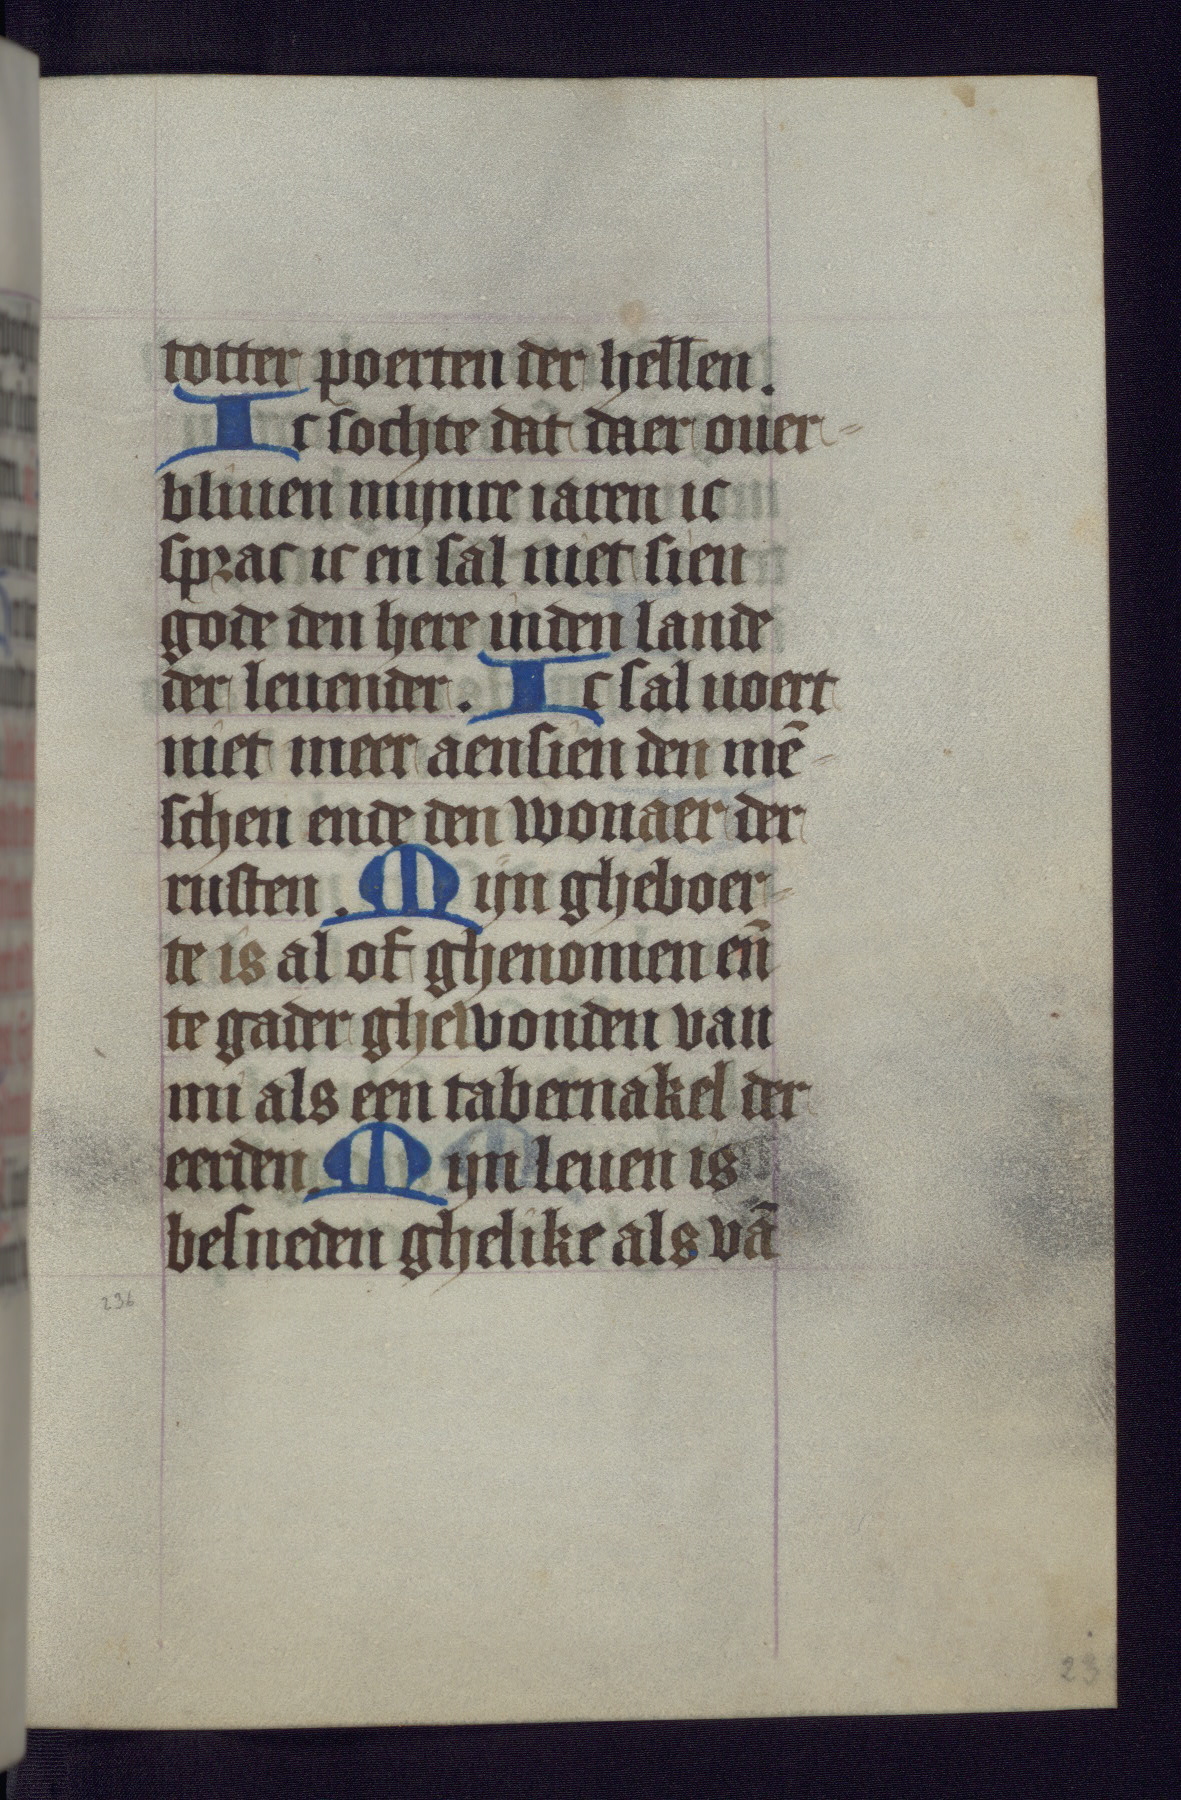 totter poerten der hellen.
Ic sochte dat daer ouer-
bliuen mijnre iaren ic
sprac ic en sal niet sien
gode den here inden lande
der leuender. Ic sal uoert
niet meer aensien den mē-
schen ende den wonaer der
rusten. Mijn gheboer-
te is al of ghenomen en̄
te gader ghewonden van
mi als een tabernakel der
eerden. Mijn leuen is
besneden ghelike als vā
236
23